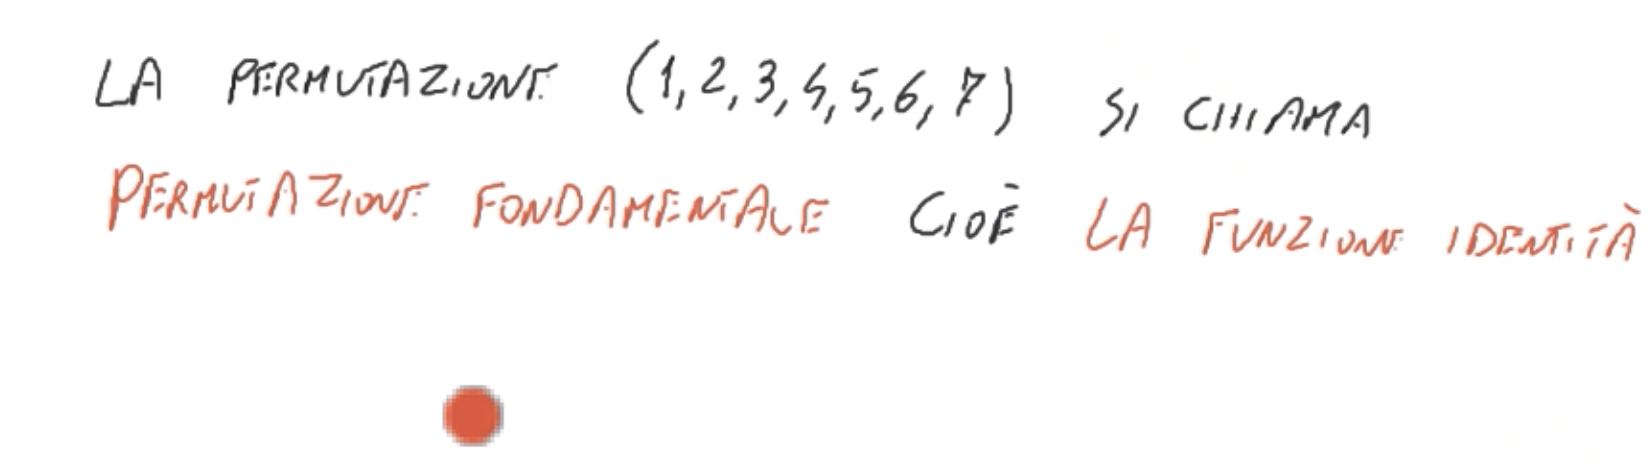 LA PERMUTAZIONE (1, 2, 3, 4, 5, 6, 7) SI CHIAMA
PERMUTAZIONE FONDAMENTALE CIOÈ LA FUNZIONE IDENTITÀ